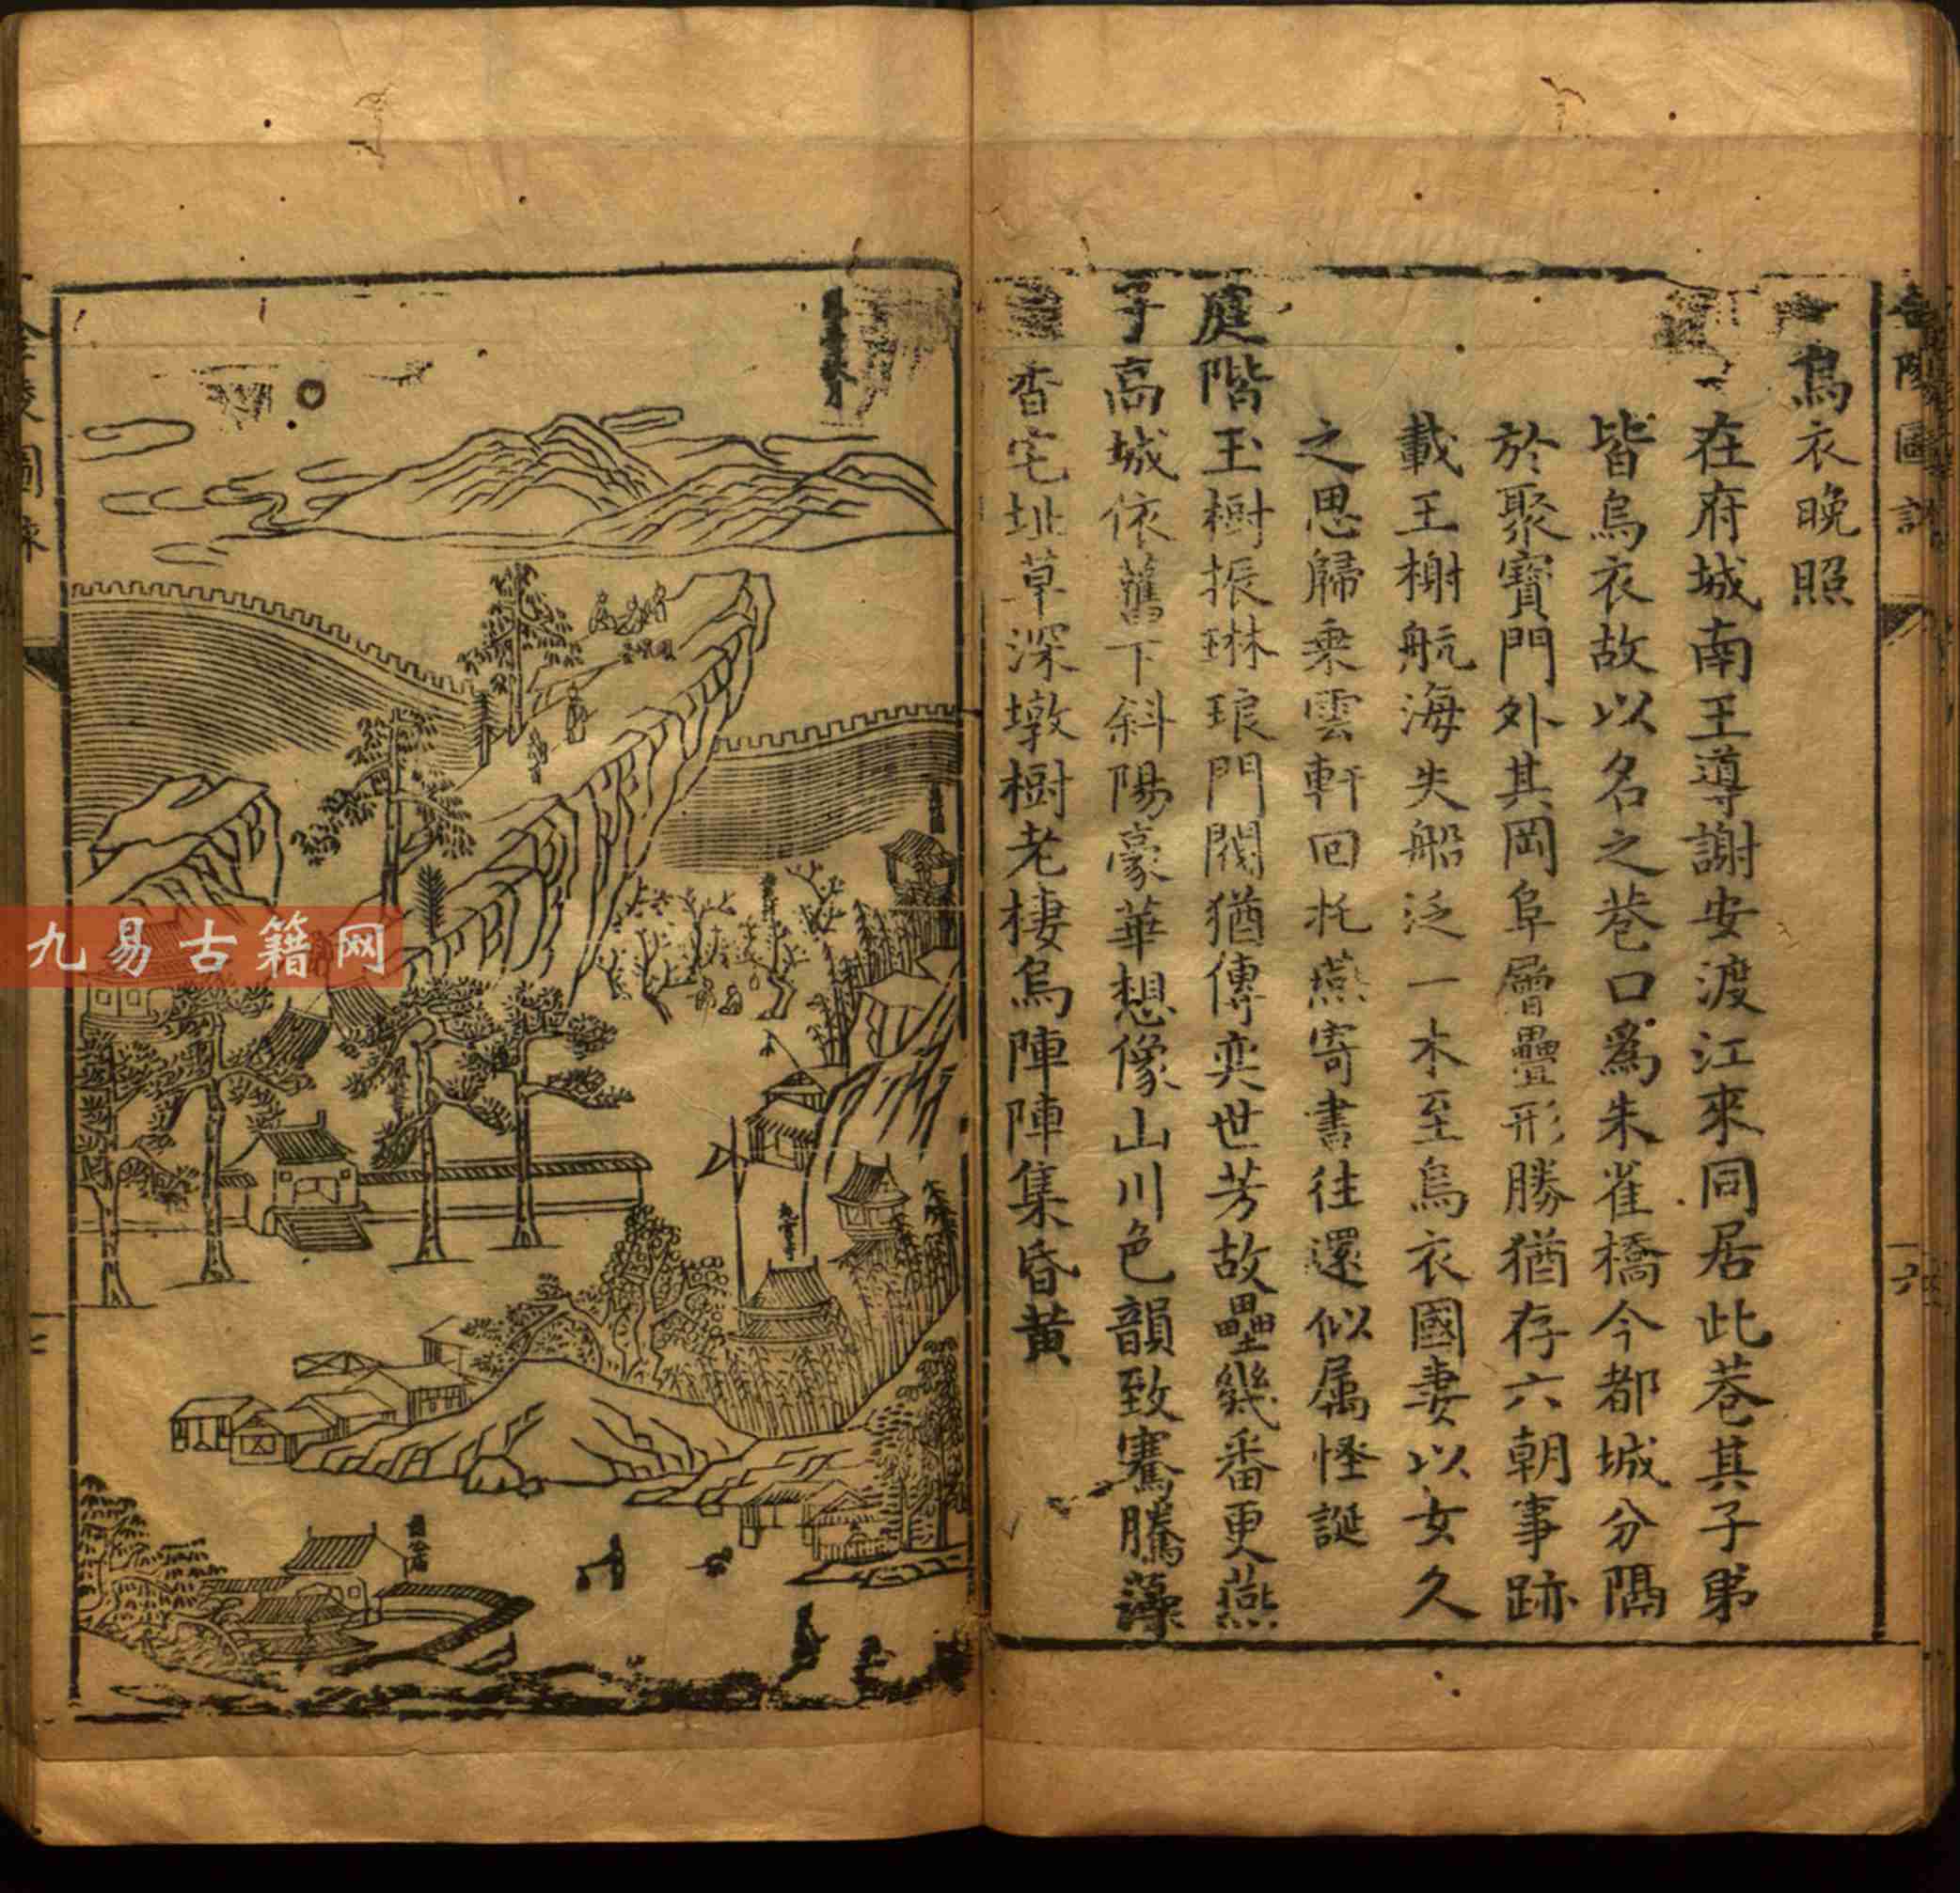 烏衣晚照
在府城南王導謝安渡江來同居此巷其子弟
皆烏衣故以名之巷口爲朱雀橋今都城分隅
於聚寶門外其岡阜層疊形勝猶存六朝事跡
載王榭航海失船泛一木至烏衣國妻以女久
之思歸乗雲軒回托燕寄書往還似属怪誕
庭階玉樹振琳琅門閥猶傳奕世芳故壘幾番更燕
子高城依舊下斜陽豪華想像山川色韻致騫騰藻
香宅址草深墩樹老棲烏陣陣集昏黄
圖詠
九易古籍网